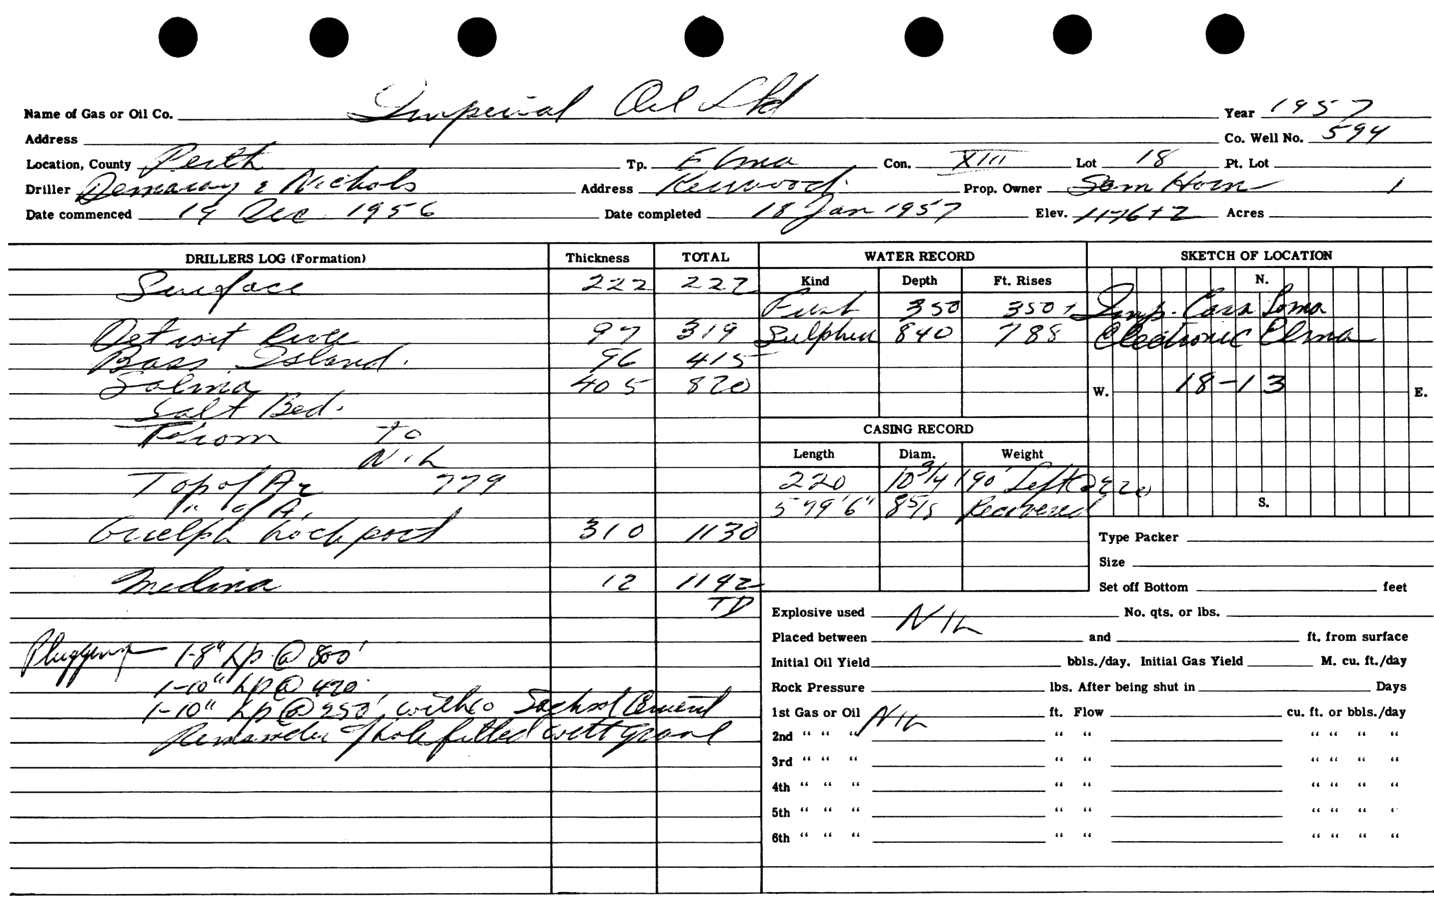 Name of Gas or Oil Co. Imperial Oil Ltd Year 1957
Address Co. Well No. 594
Location, County Perth Tp. Elma Con. XIII Lot 18 Pt. Lot
Driller Demaray & Nichols Address Kenwood. Prop. Owner Sam Horn 1
Date commenced 19 Dec 1956 Date completed 18 Jan 1957 Elev. 1176+2 Acres
DRILLERS LOG (Formation) Thickness TOTAL WATER RECORD SKETCH OF LOCATION
Surface 222 222 Kind Depth Ft. Rises N.
Fresh 350 350 Imp. Casa Loma
Detroit River 97 319 Sulphur 840 788 Electronic Elma
Bass Island. 96 415
Salina 405 820 W. 18-13 E.
Salt Bed.
From To CASING RECORD
NIL Length Diam. Weight
Top of A2 779 220 10 3/4 190' Left @ 220
" of A1 579'6" 8 5/8 Recovered S.
Guelph Lockport 310 1130 Type Packer
Size
Medina 12 1142 Set off Bottom feet
TD Explosive used NIL No. qts. or lbs.
Placed between and ft. from surface
Plugging 1-8" Lp @ 800' Initial Oil Yield bbls./day. Initial Gas Yield M. cu. ft./day
1-10" Lp @ 420' Rock Pressure lbs. After being shut in Days
1-10" Lp @ 250' with 10 Sacks of Cement 1st Gas or Oil NIL ft. Flow cu. ft. or bbls./day
Remainder of hole filled with gravel 2nd " " " " " " " " "
3rd " " " " " " " " "
4th " " " " " " " " "
5th " " " " " " " " "
6th " " " " " " " " "